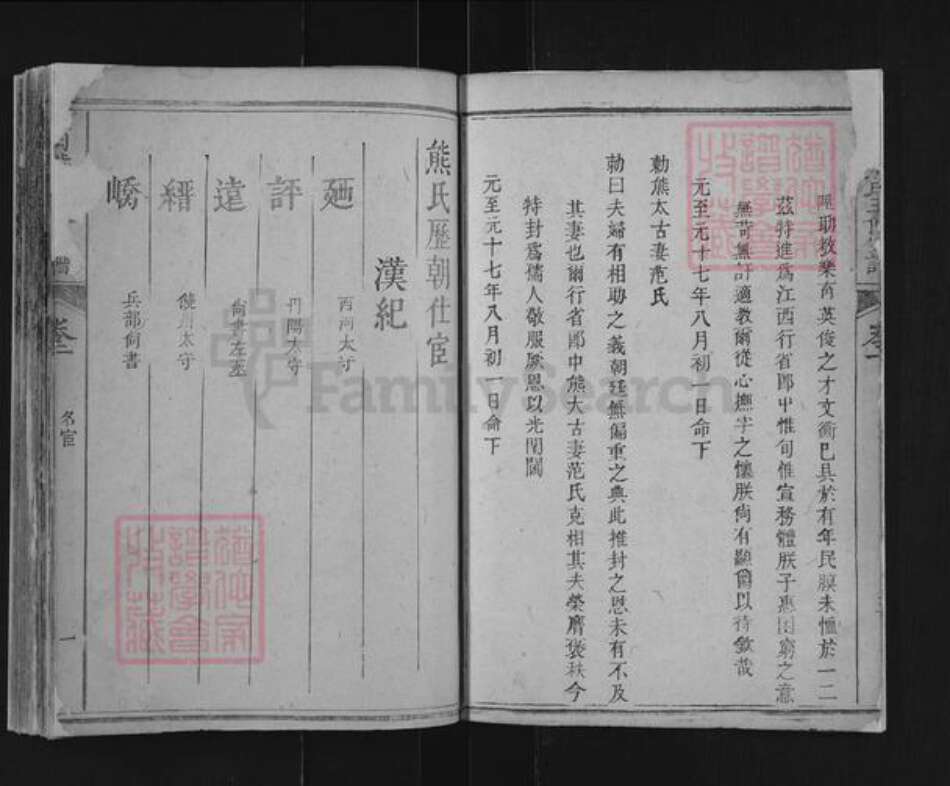 助教業有英俊之才文衡已具於有年民膜未恤於一二
茲特進為江西行省郎中惟旬惟宣務體朕子惠困窮之意
無苛無訐適教爾從心撫字之懷朕尚有顯爵以待欽哉
元至元十七年八月初一日命下
勅熊太古妻范氏
勅曰夫婦有相助之義朝廷無偏重之典此推封之恩未有不及
其妻也爾行省郎中熊大古妻范氏克相其夫榮膺褒秩今
特封爲儒人敬服厥恩以光閨閫
元至元十七年八月初一日命下
熊氏歷朝仕宦
漢紀
廼 西河太守
評 丹陽太守
遠 尚書左丞
縉 饒州太守
嶠 兵部尚書
卷一 名宦 一
FamilySearch